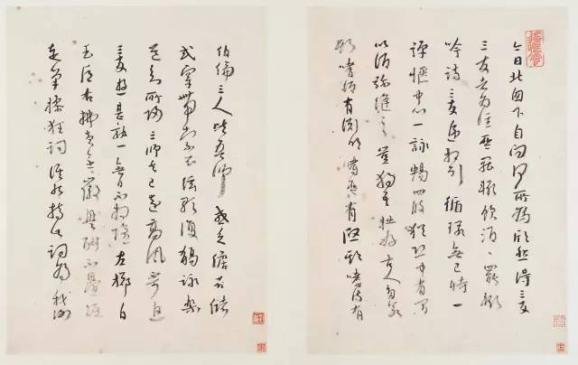 今日北窗下自問何所為欣然得三友
三友者為誰琴罷輒飲酒酒罷輒
吟詩三友遞相引循環無已時一
彈愜中心一詠暢四肢猶恐中有間
以酒彌縫之豈獨吾拙好古人多若斯
嗜詩有淵明嗜琴有啟期嗜酒有
伯倫三人皆吾師或乏儋石儲
或穿帶索衣弦歌復觴詠樂
道知所歸三師去已遠高風不可追
三友遊甚熟無日不相隨左擲白
玉卮右拂黃金徽興酣不疊紙
走筆操狂詞誰能持此詞為我謝